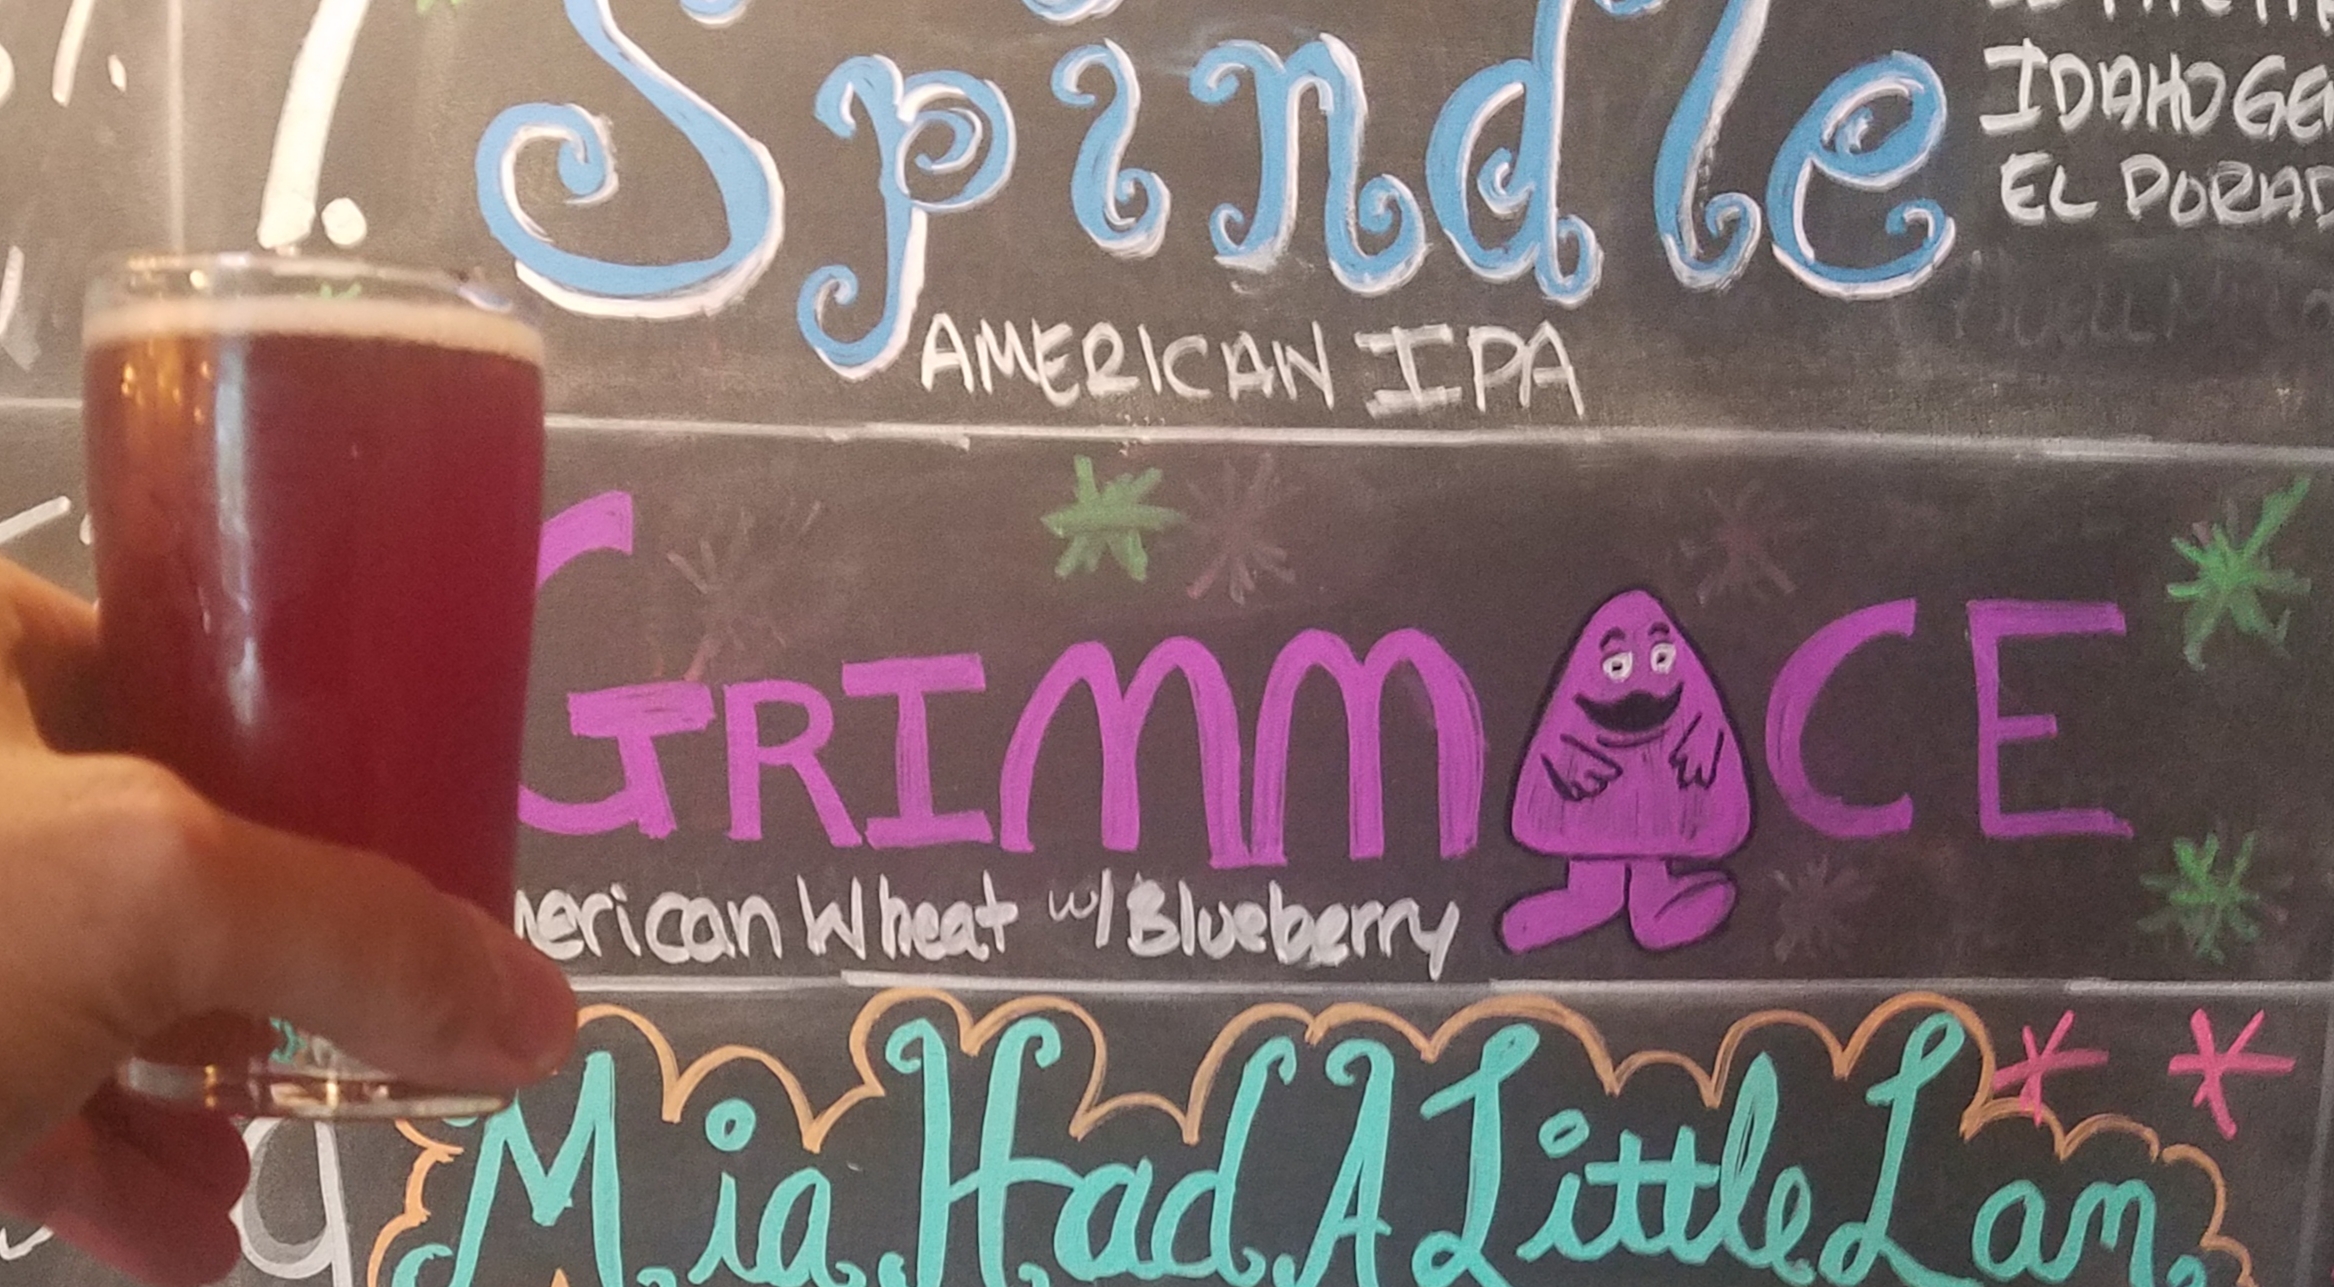 Spindle
IDAHO GE
EL DORAD
AMERICAN IPA
GRIMMACE
erican Wheat w/ Blueberry
Mia Had A Little Lam